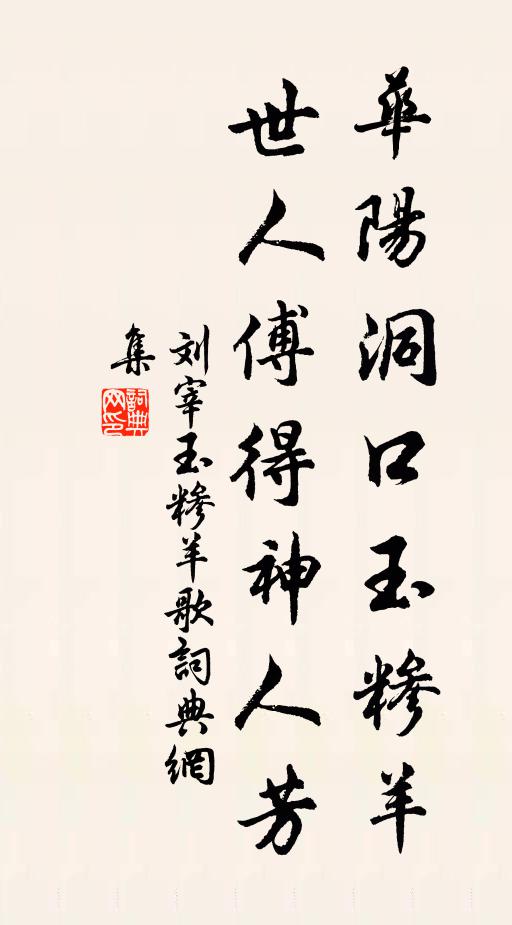 華陽洞口玉糝羊
世人傅得神人芳
刘宰玉糝羊歌詞典網
集
詞典網印